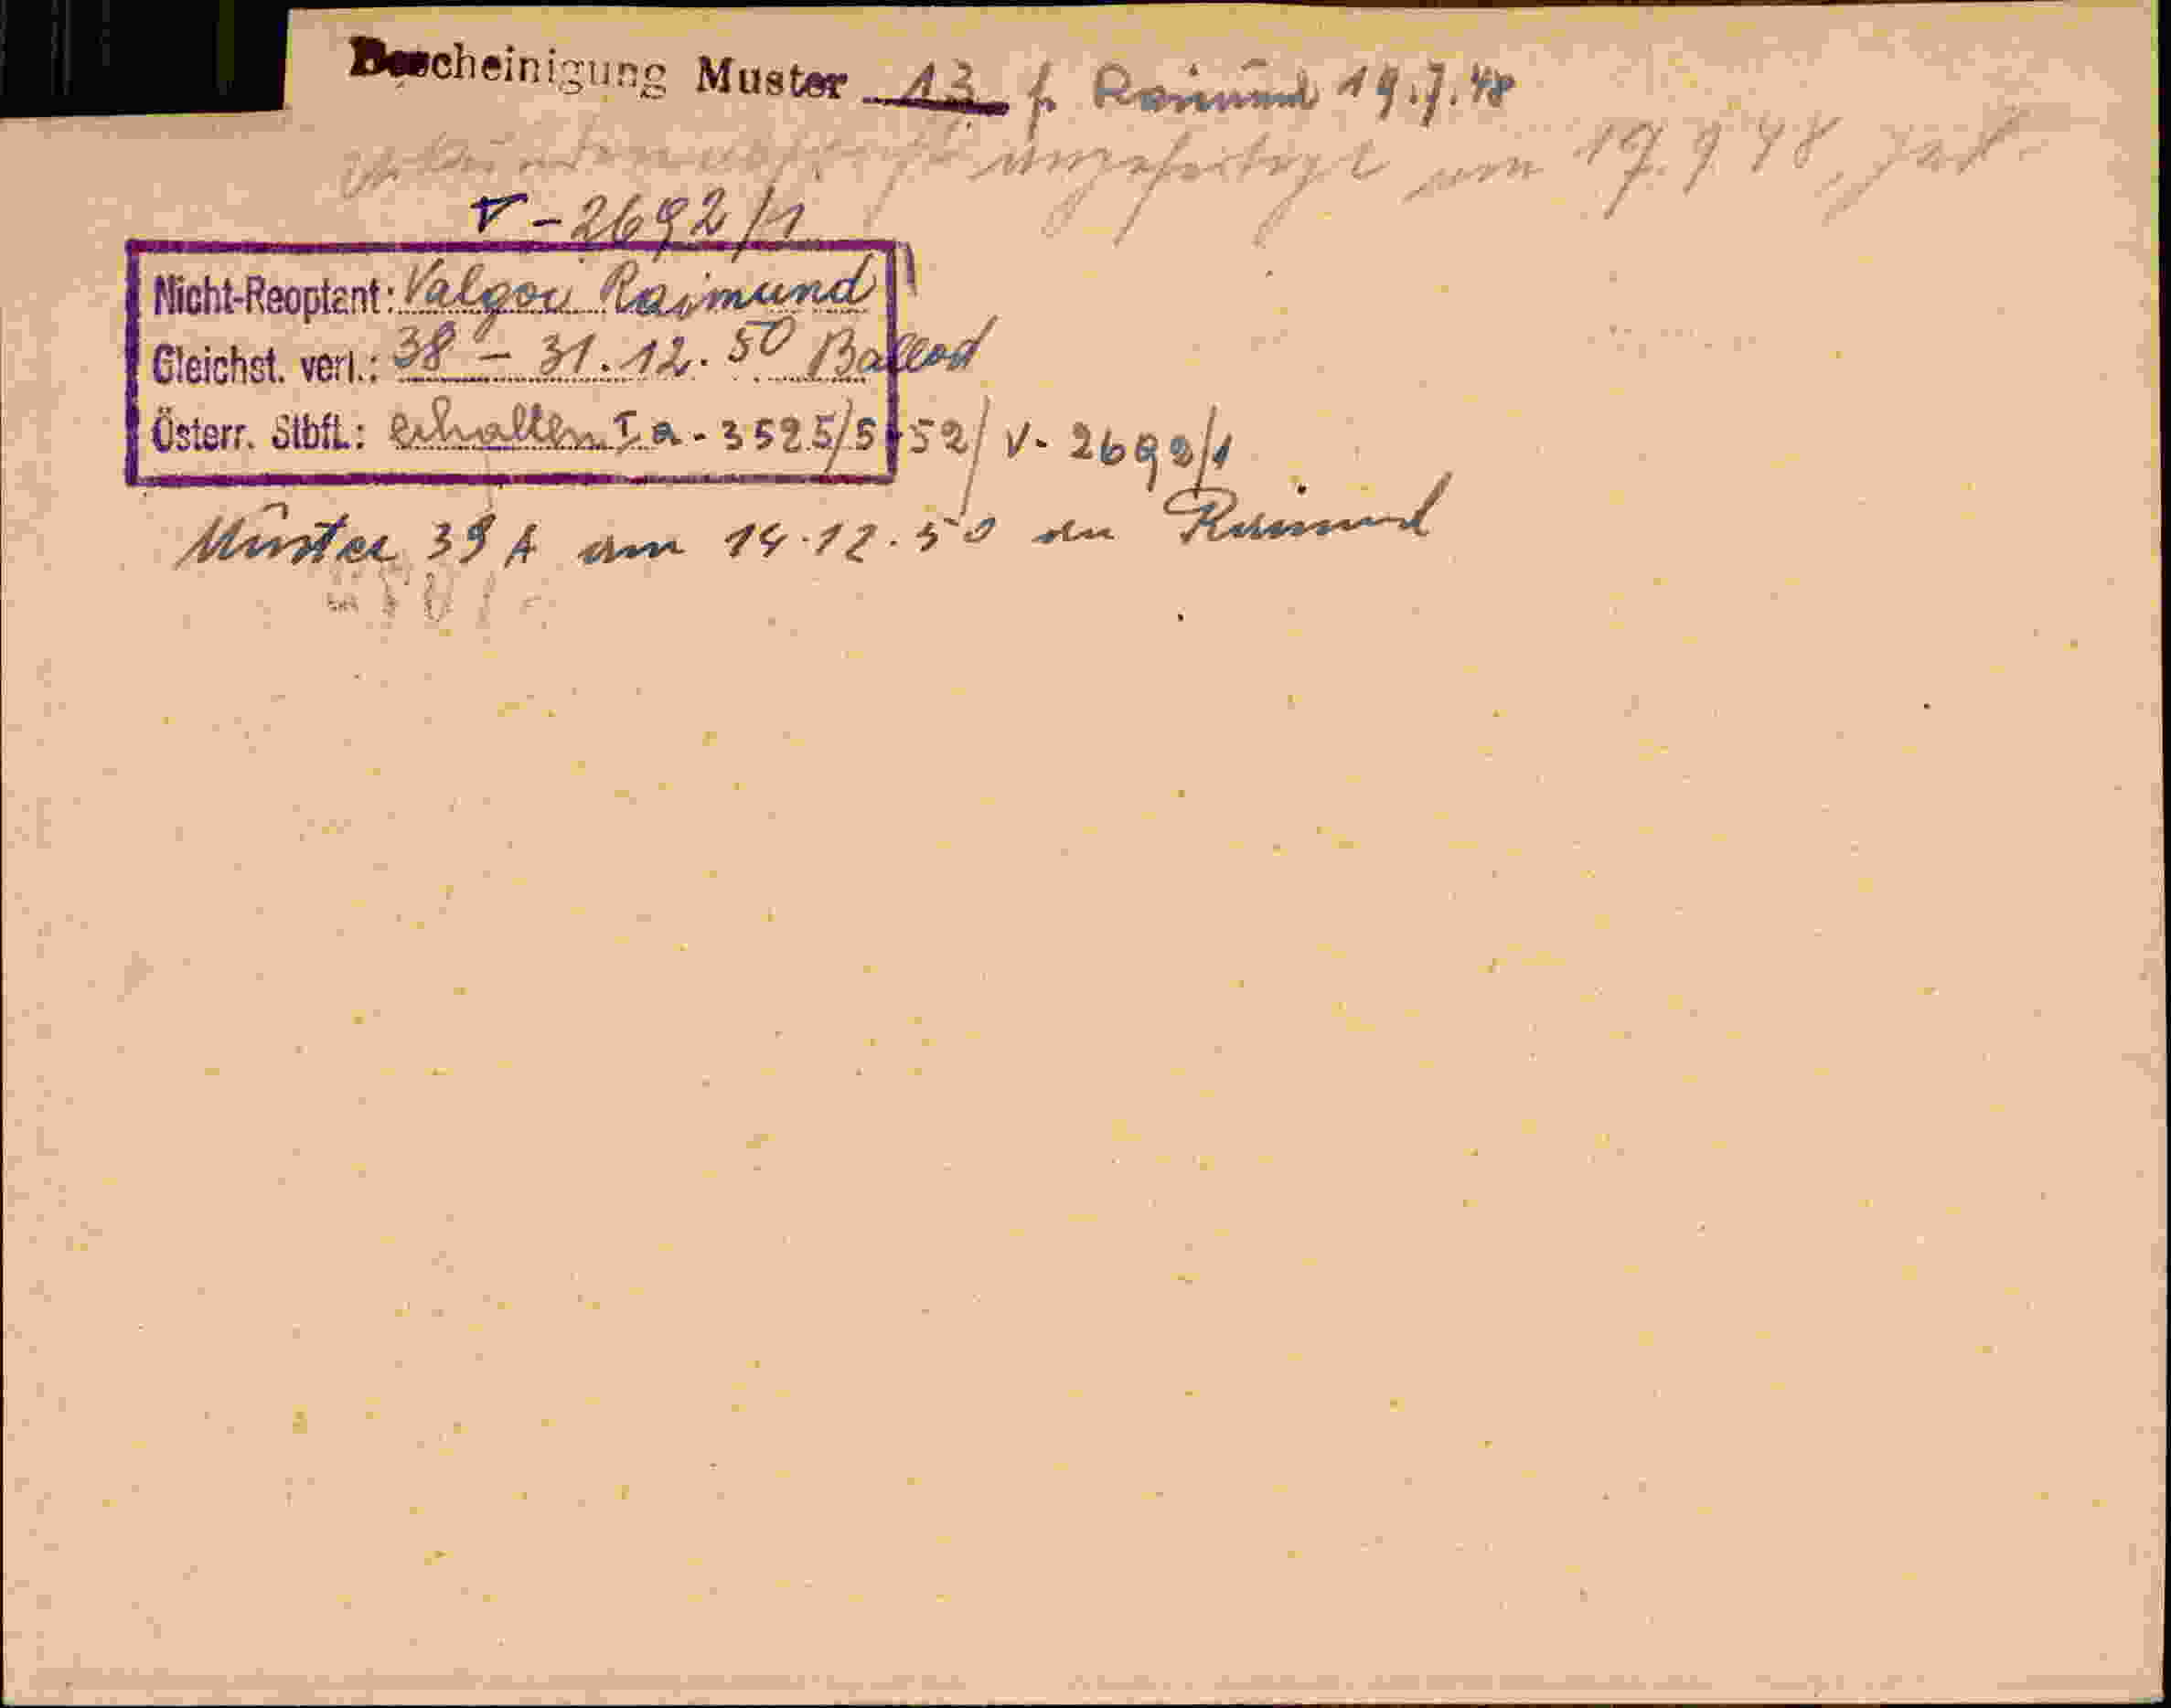 Bescheinigung Muster 13 f. Raimund 19.7.48
am 17.9.48,
V-2692/1
Nicht-Reoptant: Valgoi Raimund
Gleichst. verl.: 38 - 31.12.50
Österr. Stbft.: erhalten Ia-3525/5-52/ V-2692/1
Muster 39 A am 14.12.50 an Raimund